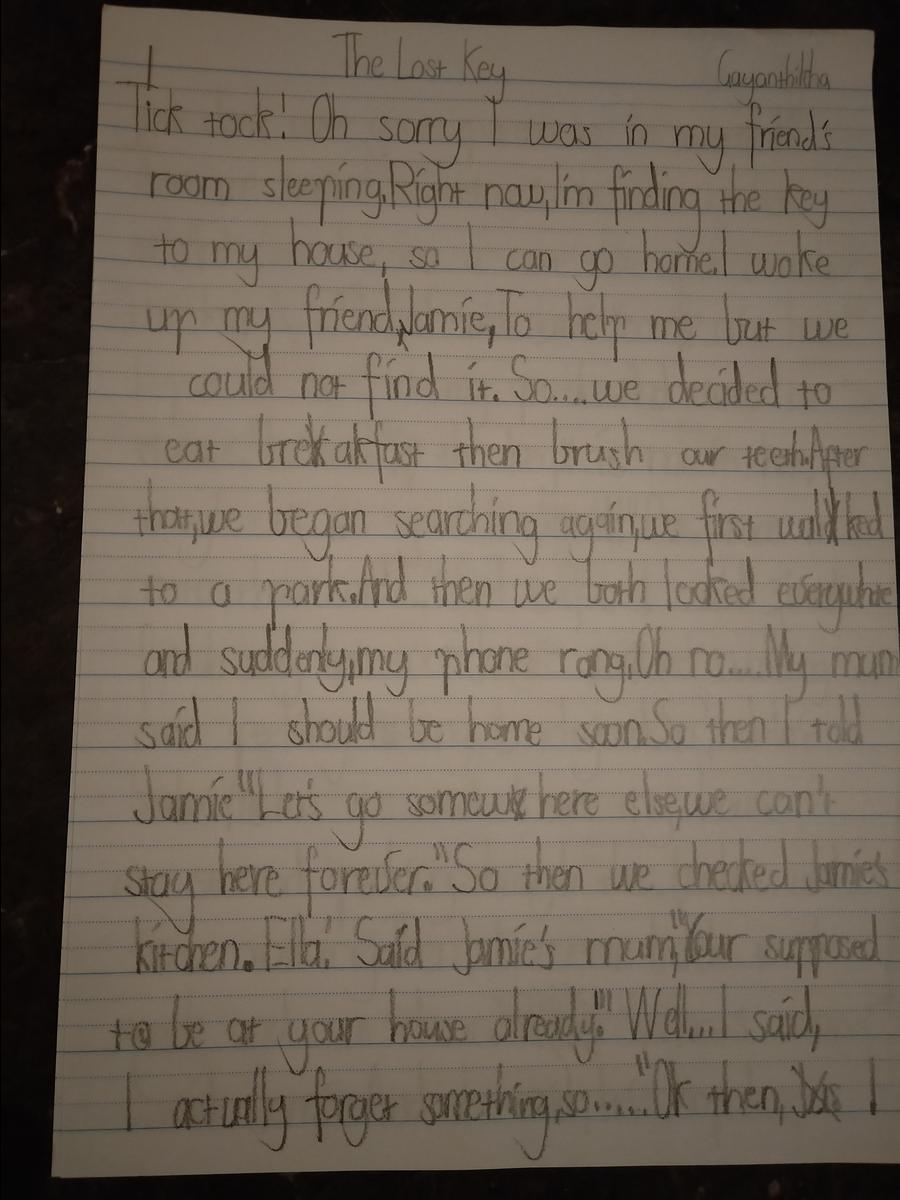 The Lost Key Gayanthiltha
Tick tock! Oh sorry I was in my friend's
room sleeping.Right now,I'm finding the key
to my house, so I can go home.I woke
up my friend,Jamie,To help me but we
could not find it. So....we decided to
eat brekakfast then brush our teeth.After
that,we began searching again,we first walked
to a park.And then we both looked everywhre
and suddenly,my phone rang.Oh no....My mum
said I should be home soon.So then I told
Jamie "Let's go somewhere else,we can't
stay here forever." So then we checked Jamie's
kitchen. Ella! Said Jamie's mum,"Your supposed
to be at your house already." Well....I said,
I actually forget something,so......"Ok then, I